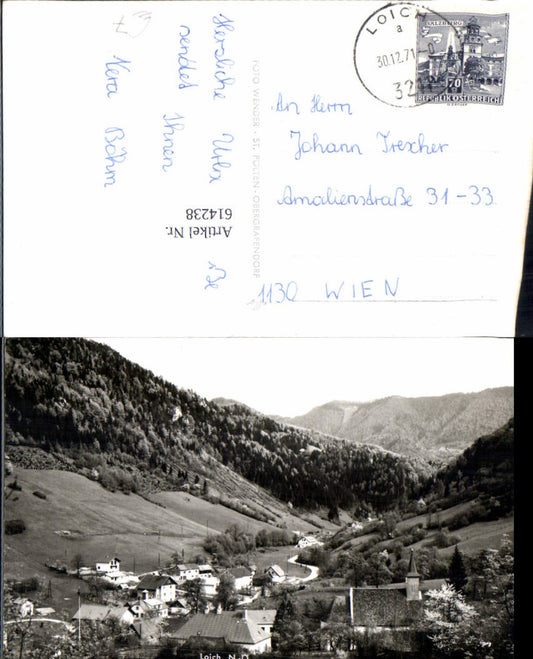 Herzliche Urlx
sendet Ihnen
Vera Böhm
Artikel Nr.
614238
FOTO WENGER - ST. PÖLTEN - OBERGRAFENDORF
LOICH
a
30.12.71
32
SALZBURG
70
REPUBLIK ÖSTERREICH
An Herrn
Johann Trexcher
Amalienstraße 31-33
1130 WIEN
Loich, N.Ö.